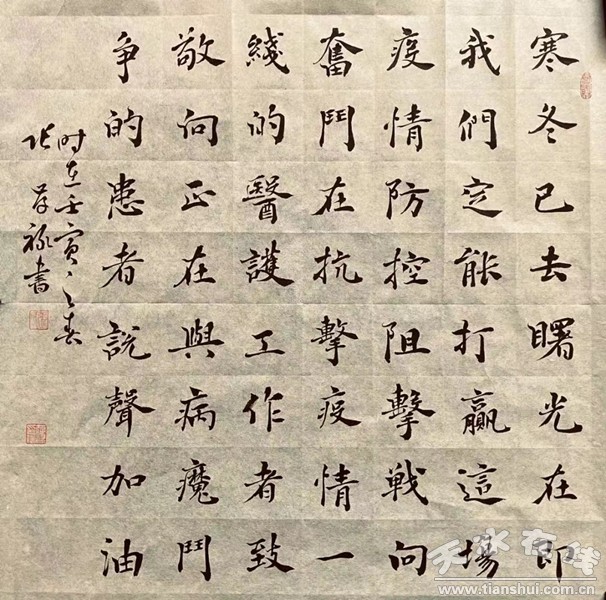 寒冬已去曙光在即
我們定能打贏這場
疫情防控阻擊戰向
奮鬥在抗擊疫情一
綫的醫護工作者致
敬向正在與病魔鬥
争的患者說聲加油
时在壬寅之春
张 禄書
天水在线
www.tianshui.com.cn